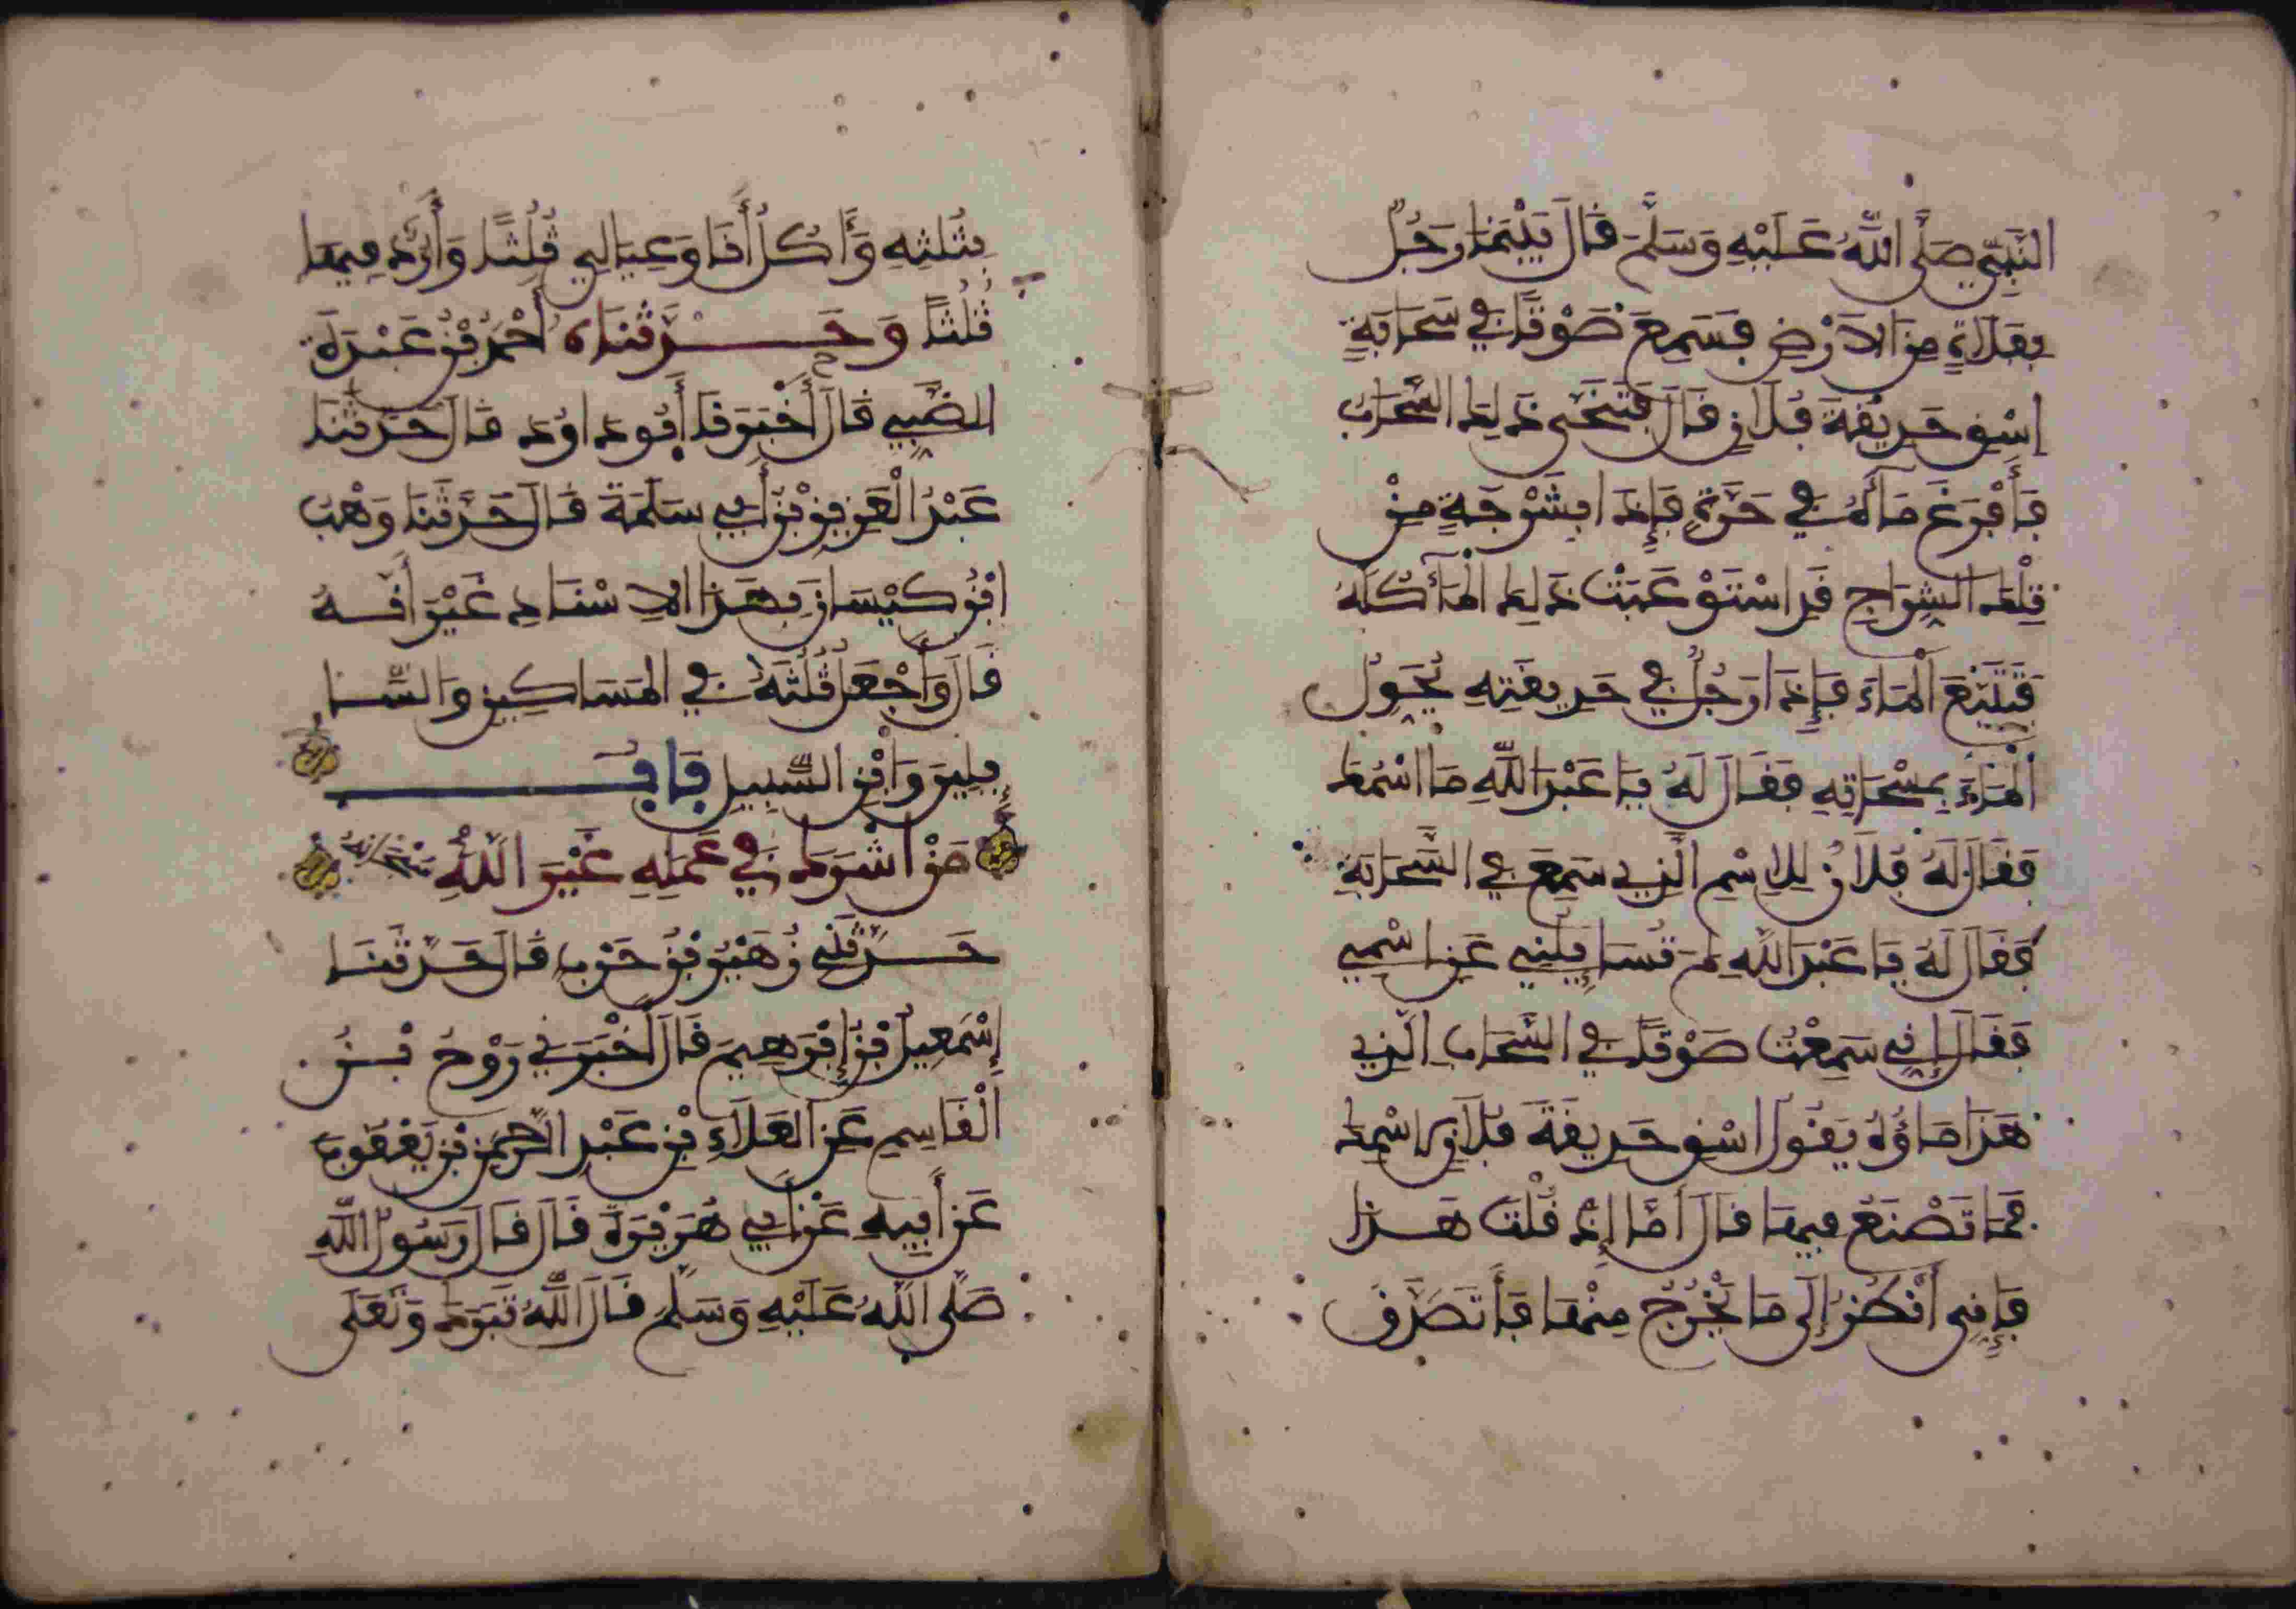 النَّبِيِّ صَلَّى اللَّهُ عَلَيْهِ وَسَلَّمَ قَالَ بَيْنَمَا رَجُلٌ
بِفَلَاةٍ مِنَ الْأَرْضِ فَسَمِعَ صَوْتًا فِي سَحَابَةٍ
اسْقِ حَدِيقَةَ فُلَانٍ قَالَ فَتَنَحَّى ذَلِكَ السَّحَابُ
فَأَفْرَغَ مَاءَهُ فِي حَرَّةٍ فَإِذَا بِشَرْجَةٍ مِنْ
تِلْكَ الشِّرَاجِ قَدِ اسْتَوْعَبَتْ ذَلِكَ الْمَاءَ كُلَّهُ
فَتَتَبَّعَ الْمَاءَ فَإِذَا رَجُلٌ فِي حَدِيقَتِهِ يُحَوِّلُ
الْمَاءَ بِمِسْحَاتِهِ فَقَالَ لَهُ يَا عَبْدَ اللَّهِ مَا اسْمُكَ
فَقَالَ لَهُ فُلَانٌ لِلِاسْمِ الَّذِي سَمِعَ فِي السَّحَابَةِ
فَقَالَ لَهُ يَا عَبْدَ اللَّهِ لِمَ تُسَائِلُنِي عَنِ اسْمِي
فَقَالَ إِنِّي سَمِعْتُ صَوْتًا فِي السَّحَابِ الَّذِي
هَذَا مَاؤُهُ يَقُولُ اسْقِ حَدِيقَةَ فُلَانٍ لِاسْمِكَ
فَمَا تَصْنَعُ فِيهَا قَالَ أَمَّا إِذْ قُلْتَ هَذَا
فَإِنِّي أَنْظُرُ إِلَى مَا يَخْرُجُ مِنْهَا فَأَتَصَدَّقُ
بِثُلُثِهِ وَآكُلُ أَنَا وَعِيَالِي ثُلُثًا وَأَرُدُّ فِيهَا
ثُلُثًا وَحَدَّثَنَاهُ أَحْمَدُ بْنُ عَبْدَةَ
الضَّبِّيُّ قَالَ أَخْبَرَنَا أَبُو دَاوُدَ قَالَ حَدَّثَنَا
عَبْدُ الْعَزِيزِ بْنُ أَبِي سَلَمَةَ قَالَ حَدَّثَنَا وَهْبُ
ابْنُ كَيْسَانَ بِهَذَا الْإِسْنَادِ غَيْرَ أَنَّهُ
قَالَ وَأَجْعَلُ ثُلُثَهُ فِي الْمَسَاكِينِ وَالسَّا
ئِلِينَ وَابْنِ السَّبِيلِ بَابُ
مَنْ أَشْرَكَ فِي عَمَلِهِ غَيْرَ اللَّهِ
حَدَّثَنِي زُهَيْرُ بْنُ حَرْبٍ قَالَ حَدَّثَنَا
إِسْمَعِيلُ بْنُ إِبْرَهِيمَ قَالَ أَخْبَرَنِي رَوْحُ بْنُ
الْقَاسِمِ عَنِ الْعَلَاءِ بْنِ عَبْدِ الرَّحْمَنِ بْنِ يَعْقُوبَ
عَنْ أَبِيهِ عَنْ أَبِي هُرَيْرَةَ قَالَ قَالَ رَسُولُ اللَّهِ
صَلَّى اللَّهُ عَلَيْهِ وَسَلَّمَ قَالَ اللَّهُ تَبَرَكَ وَتَعَلَى